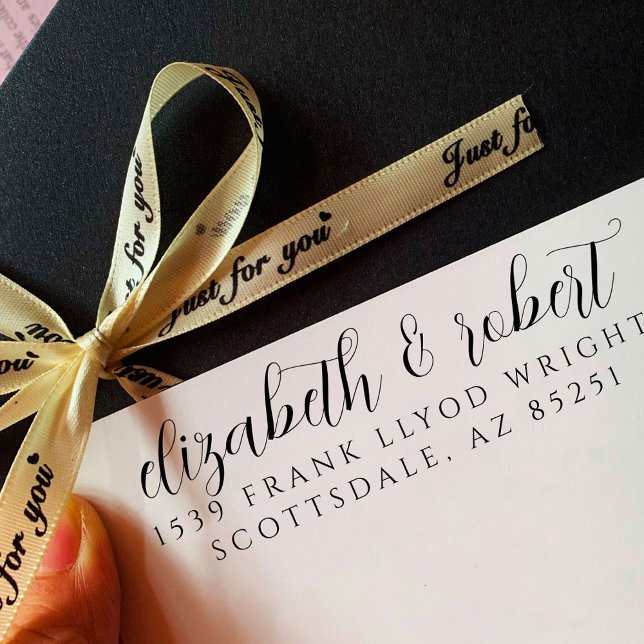 Just for you
Just for
Just for you
for you
you
for you
elizabeth & robert
1539 FRANK LLYOD WRIGHT
SCOTTSDALE, AZ 85251